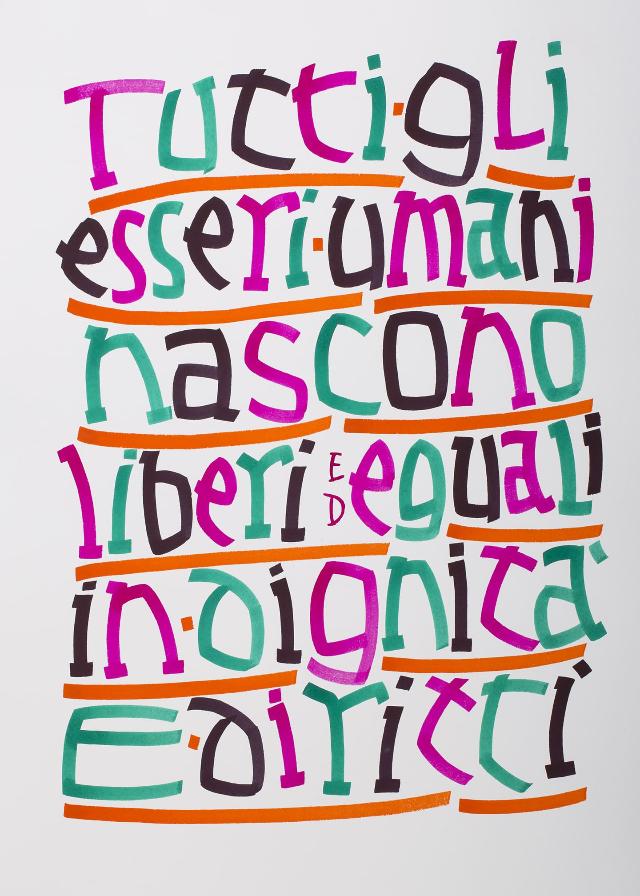 Tutti·gli
esseri·umani
nascono
liberi ED eguali
in·dignità
E·diritti